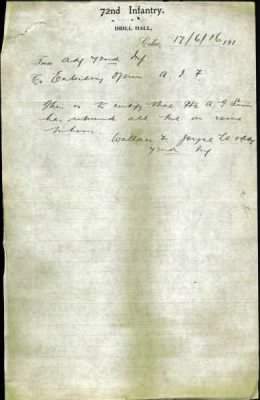 72nd Infantry.
DRILL HALL,
Colac, 17/6/16 191
From Adj 72nd Inf
To Enlisting Officer A I F
This is to certify that Pte A. G.
has returned all kit on issue
to him.
Wallace F. Joyce Lt
72nd Inf